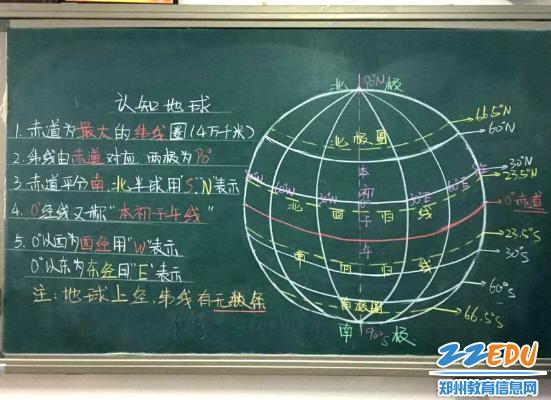 认知地球
1.赤道为最大的纬线圈(4万千米)
2.纬线由赤道对应 两极为90°
3.赤道平分南、北半球用"S""N"表示
4. 0°经线又称"本初子午线"
5. 0°以西为西经用"W"表示
0°以东为东经用"E"表示
注:地球上经、纬线有无数条
北 90°N 极
66.5°N
60°N
北极圈
30°N
23.5°N
60°W 30°W 30°E 60°E
北回归线
本初子午线
0°赤道
23.5°S
30°S
南回归线
60°S
66.5°S
南极圈
南 90°S 极
ZZEDU
郑州教育信息网